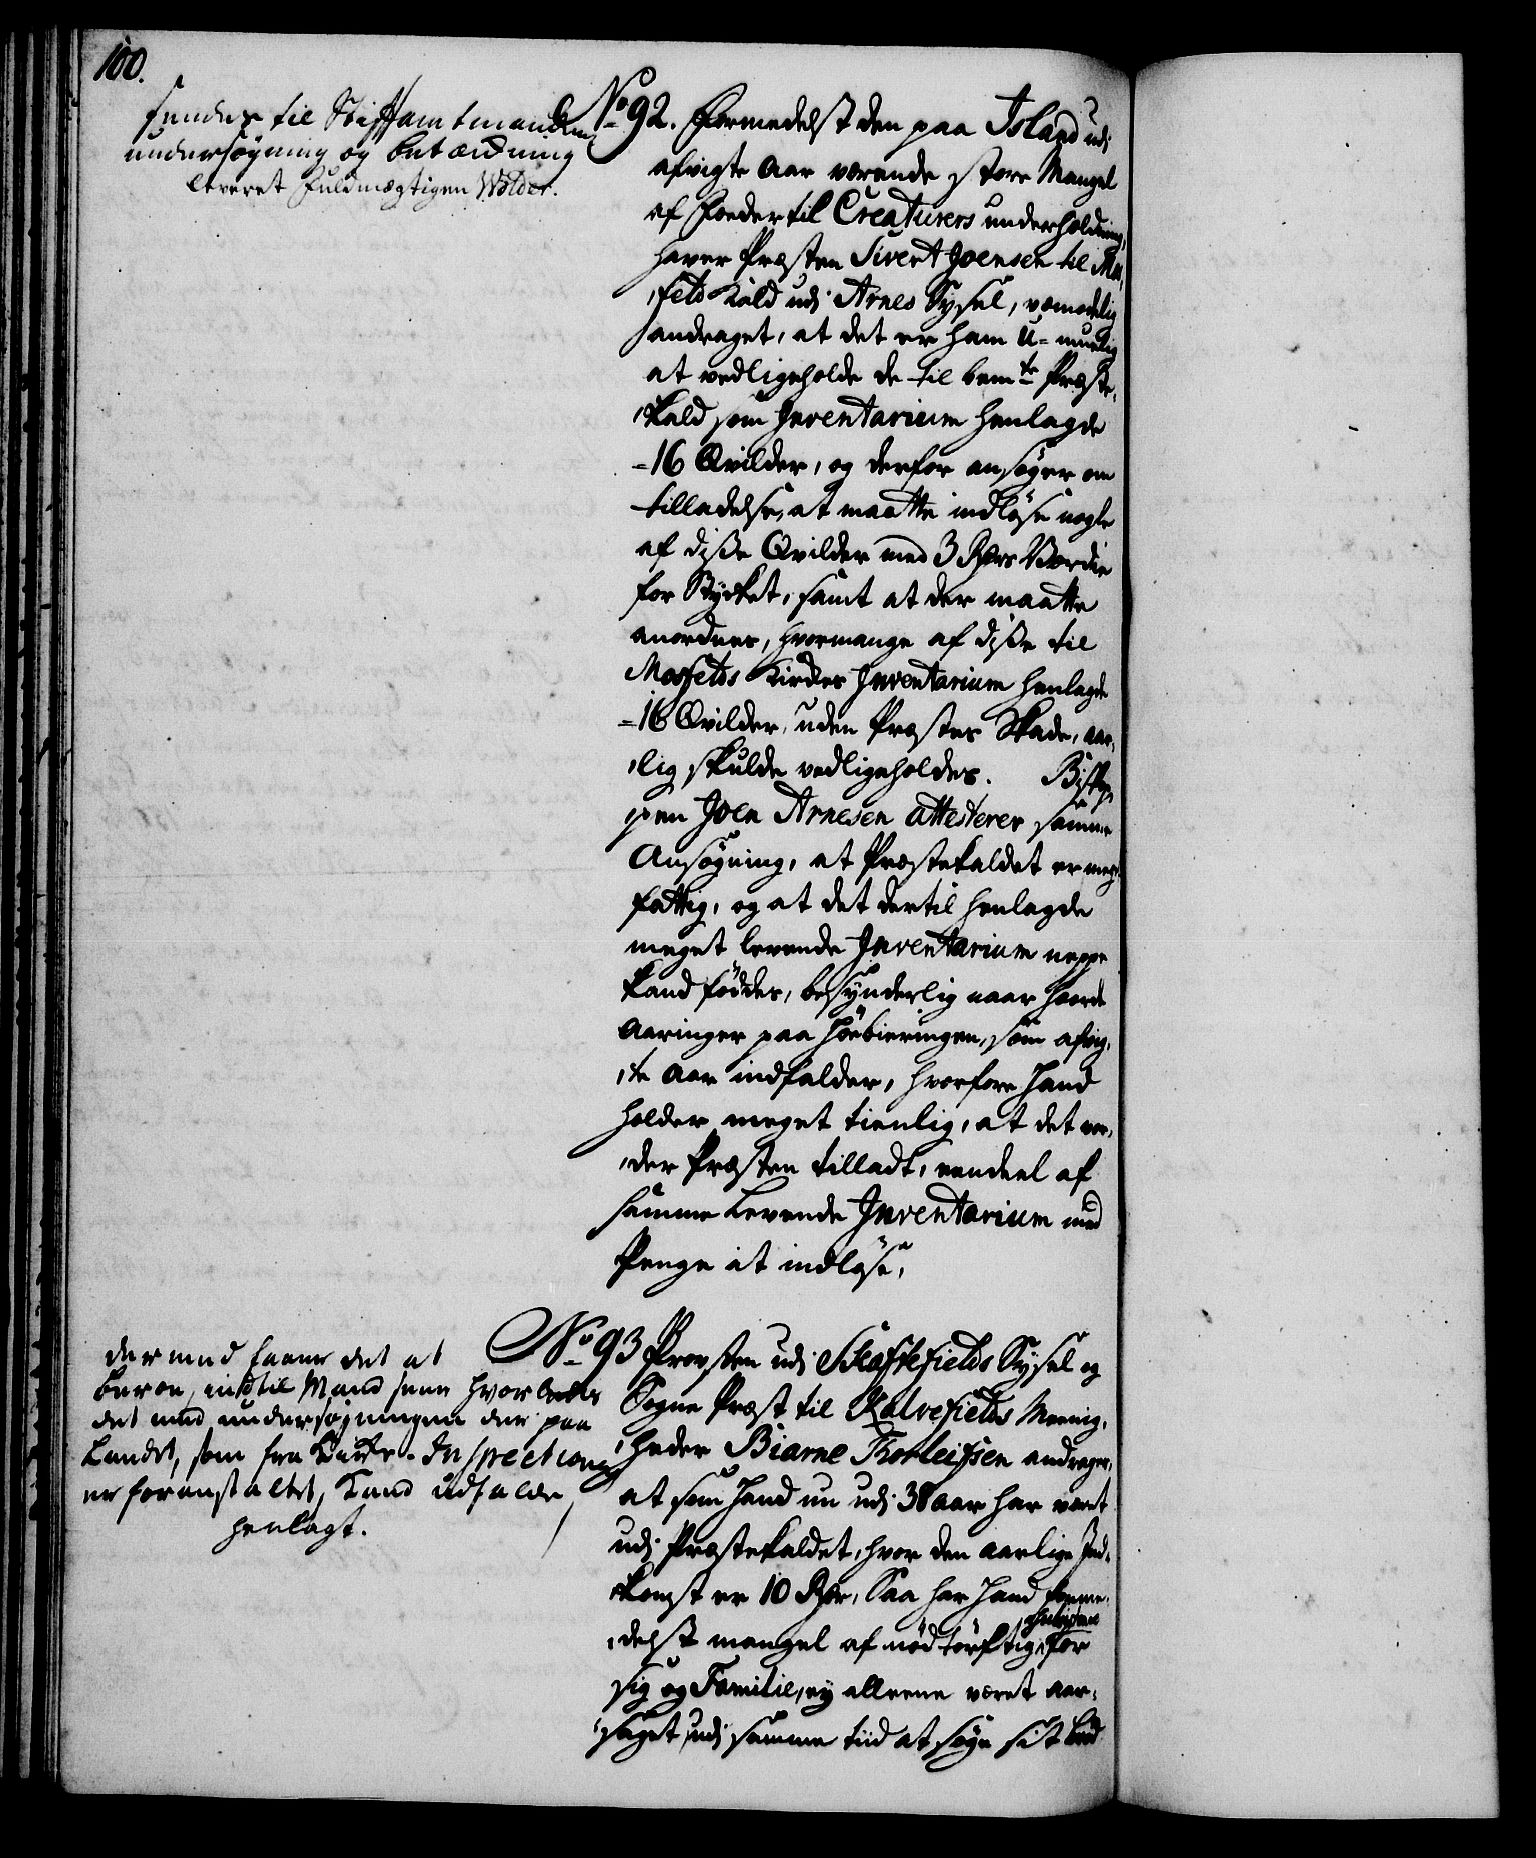 100.
sendes til Stiftamtmandens
undersøgning og betænkning
leveret Fuldmægtigen Wolder.
No 92. Formedelst den paa Island udj
afvigte Aar værende store Mangel
af Foeder til Creaturers underholdning,
haver Præsten Sivert Joensen til Mos,
,felds Kald udj Arnes Sysel, vemodelig
andraget, at det er ham u-muelig
at vedligeholde de til bemte Præste,
,Kald som Inventarium henlagde
-16 Qvilder, og derfor ansøger om
tilladelse, at maatte indløse nogle
af disse Qvilder med 3 Rdrs Værdie
for Stycket, samt at der maatte
anordnes, hvormange af disse til
Mosfelds Kirkes Inventarium henlagde
-16 Qvilder, uden Præstes Skade, aar,
,lig skulde vedligeholdes. Biskop,
pen Joen Arnesen attesterer samme
Ansøgning, at Præstekaldet er meget
fattig, og at det dertil henlagde
meget levende Inventarium neppe
kand føddes, besynderlig naar haarde
Aaringer paa Høebieringen, som afvig,
,te Aar indfalder, hvorfore Hand
holder meget tienlig, at det vor,
,der Præsten tilladt, eendeel af
samme Levende Inventarium med
Penge at indløse,
dermed faaer det at
beroe, indtil Mand seer hvorledes
det med undersøgningen der paa
Landet, som fra Kirke-Inspectionen
er foranstaltet, Kand udfalde,
henlagt.
No 93 Provsten udj Skaftefields Sysel og
Sogne Præst til Kalvefields Meenig,
,heder Biarne Thorleifsen andrager,
at som Hand nu udj 38 aar har været
udj Præstekaldet, hvor den aarlige Ind,
,komst er 10 Rdr, Saa har Hand forme,
,delst mangel af nødtørftig subsistence for
sig og Familie, ey alleene været aar,
,saget, udj samme tiid at søge sit brød